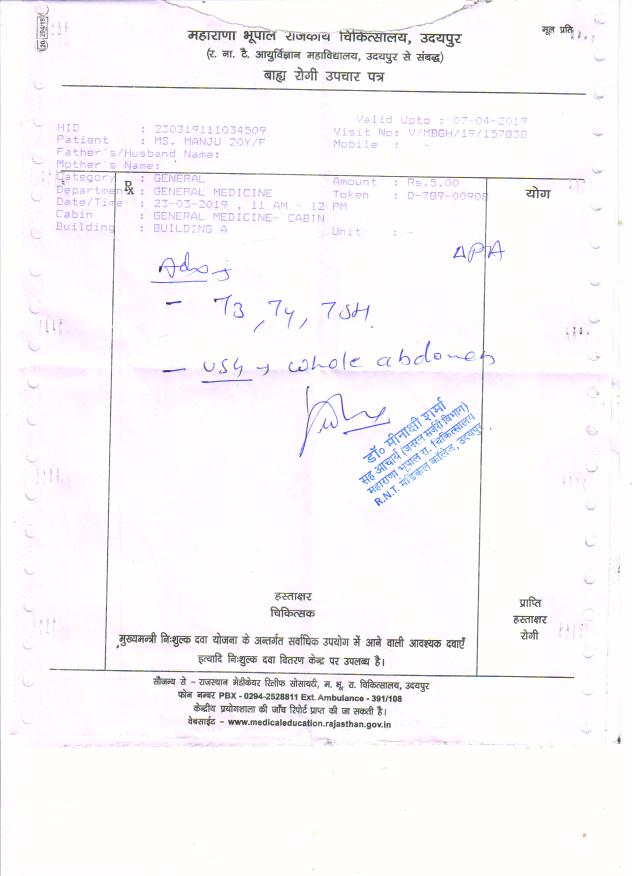 मूल प्रति
महाराणा भूपाल राजकीय चिकित्सालय, उदयपुर
(र. ना. टै. आयुर्विज्ञान महाविद्यालय, उदयपुर से संबद्ध)
बाह्य रोगी उपचार पत्र
Valid Upto : 07-04-2019
HID : 230319111034509 Visit No: V/MBGH/19/157838
Patient : MS. MANJU 20Y/F Mobile : -
Father's/Husband Name:
Mother's Name:
Category : GENERAL Amount : Rs.5.00
Department : GENERAL MEDICINE Token : D-789-00908
Date/Time : 23-03-2019 , 11 AM - 12 PM
Cabin : GENERAL MEDICINE- CABIN
Building : BUILDING A Unit : -
Rx
योग
Adv
- T3, T4, TSH
- USG → whole abdomen
डॉ० मीनाक्षी शर्मा
सह आचार्य (जनरल सर्जरी विभाग)
महाराणा भूपाल रा. चिकित्सालय
R.N.T. मेडिकल कॉलेज, उदयपुर
हस्ताक्षर
चिकित्सक
प्राप्ति
हस्ताक्षर
रोगी
मुख्यमन्त्री निःशुल्क दवा योजना के अन्तर्गत सर्वाधिक उपयोग में आने वाली आवश्यक दवाएँ
इत्यादि निःशुल्क दवा वितरण केन्द्र पर उपलब्ध है।
सौजन्य से - राजस्थान मेडीकेयर रिलीफ सोसायटी, म. भू. रा. चिकित्सालय, उदयपुर
फोन नम्बर PBX - 0294-2528811 Ext. Ambulance - 391/108
केन्द्रीय प्रयोगशाला की जाँच रिपोर्ट प्राप्त की जा सकती है।
वेबसाईट - www.medicaleducation.rajasthan.gov.in